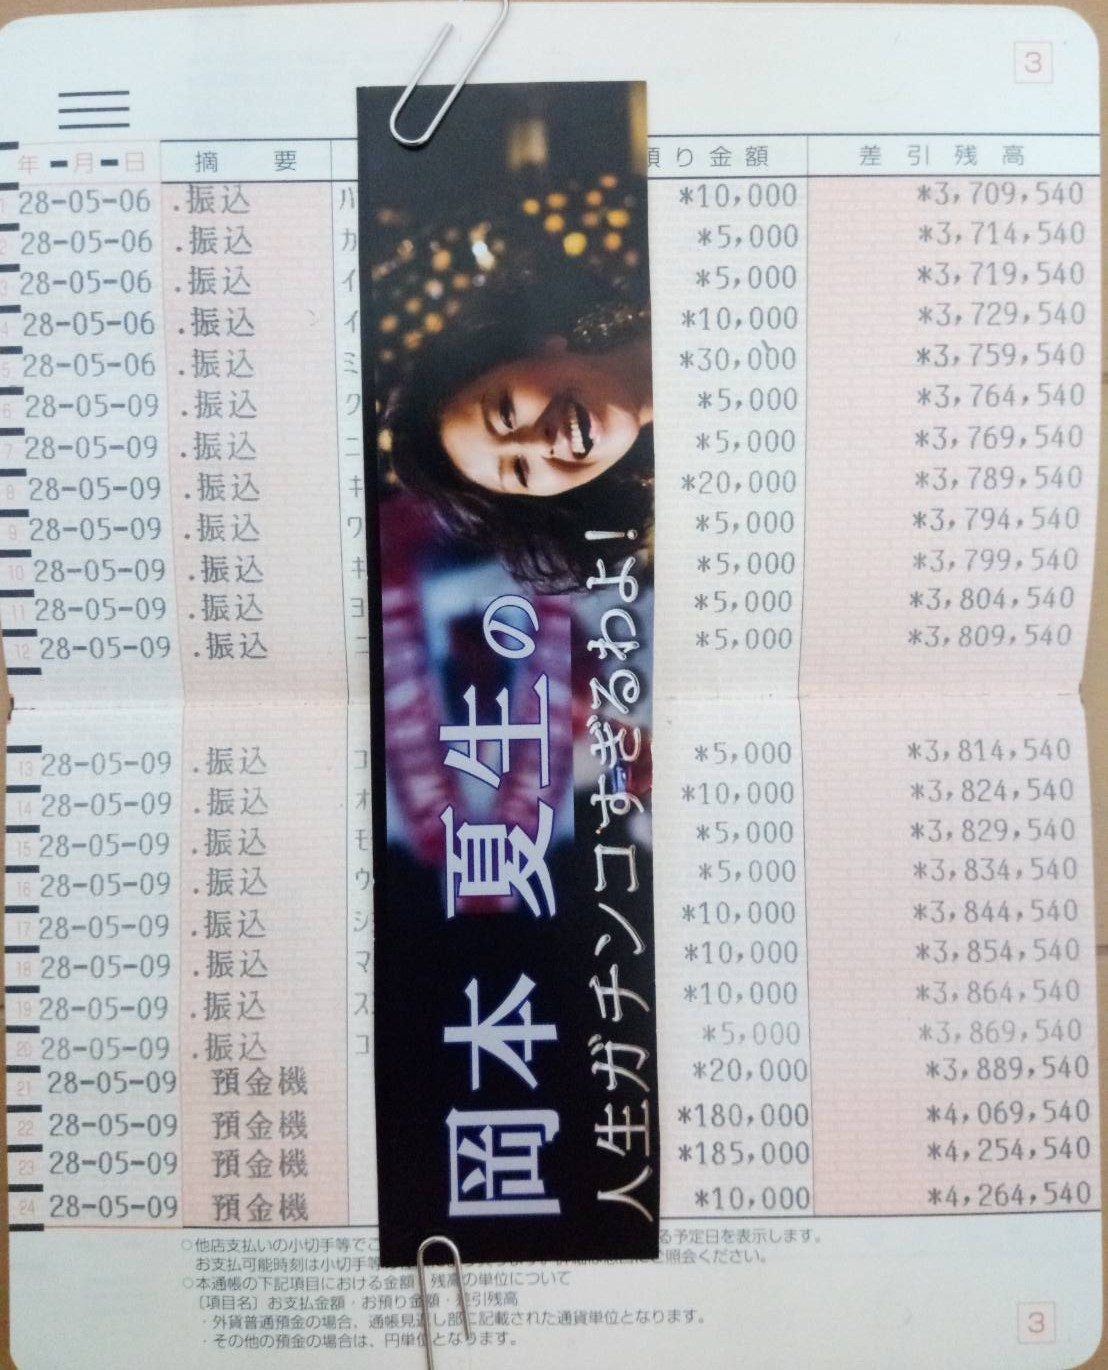 3
年-月-日 摘要 預り金額 差引残高
1 28-05-06 .振込 ハ *10,000 *3,709,540
2 28-05-06 .振込 カ *5,000 *3,714,540
3 28-05-06 .振込 イ *5,000 *3,719,540
4 28-05-06 .振込 イ *10,000 *3,729,540
5 28-05-06 .振込 ミ *30,000 *3,759,540
6 28-05-09 .振込 ク *5,000 *3,764,540
7 28-05-09 .振込 ニ *5,000 *3,769,540
8 28-05-09 .振込 キ *20,000 *3,789,540
9 28-05-09 .振込 ワ *5,000 *3,794,540
10 28-05-09 .振込 キ *5,000 *3,799,540
11 28-05-09 .振込 ヨ *5,000 *3,804,540
12 28-05-09 .振込 ニ *5,000 *3,809,540
13 28-05-09 .振込 コ *5,000 *3,814,540
14 28-05-09 .振込 オ *10,000 *3,824,540
15 28-05-09 .振込 モ *5,000 *3,829,540
16 28-05-09 .振込 ウ *5,000 *3,834,540
17 28-05-09 .振込 シ *10,000 *3,844,540
18 28-05-09 .振込 マ *10,000 *3,854,540
19 28-05-09 .振込 ス *10,000 *3,864,540
20 28-05-09 .振込 コ *5,000 *3,869,540
21 28-05-09 預金機 *20,000 *3,889,540
22 28-05-09 預金機 *180,000 *4,069,540
23 28-05-09 預金機 *185,000 *4,254,540
24 28-05-09 預金機 *10,000 *4,264,540
岡本 夏生の
人生ガチンコすぎるわよ!
○他店支払いの小切手等でご る予定日を表示します。
お支払可能時刻は小切手等 ご照会ください。
○本通帳の下記項目における金額・残高の単位について
〔項目名〕お支払金額・お預り金額・差引残高
・外貨普通預金の場合、通帳見返し部に記載された通貨単位となります。
・その他の預金の場合は、円単位となります。
3